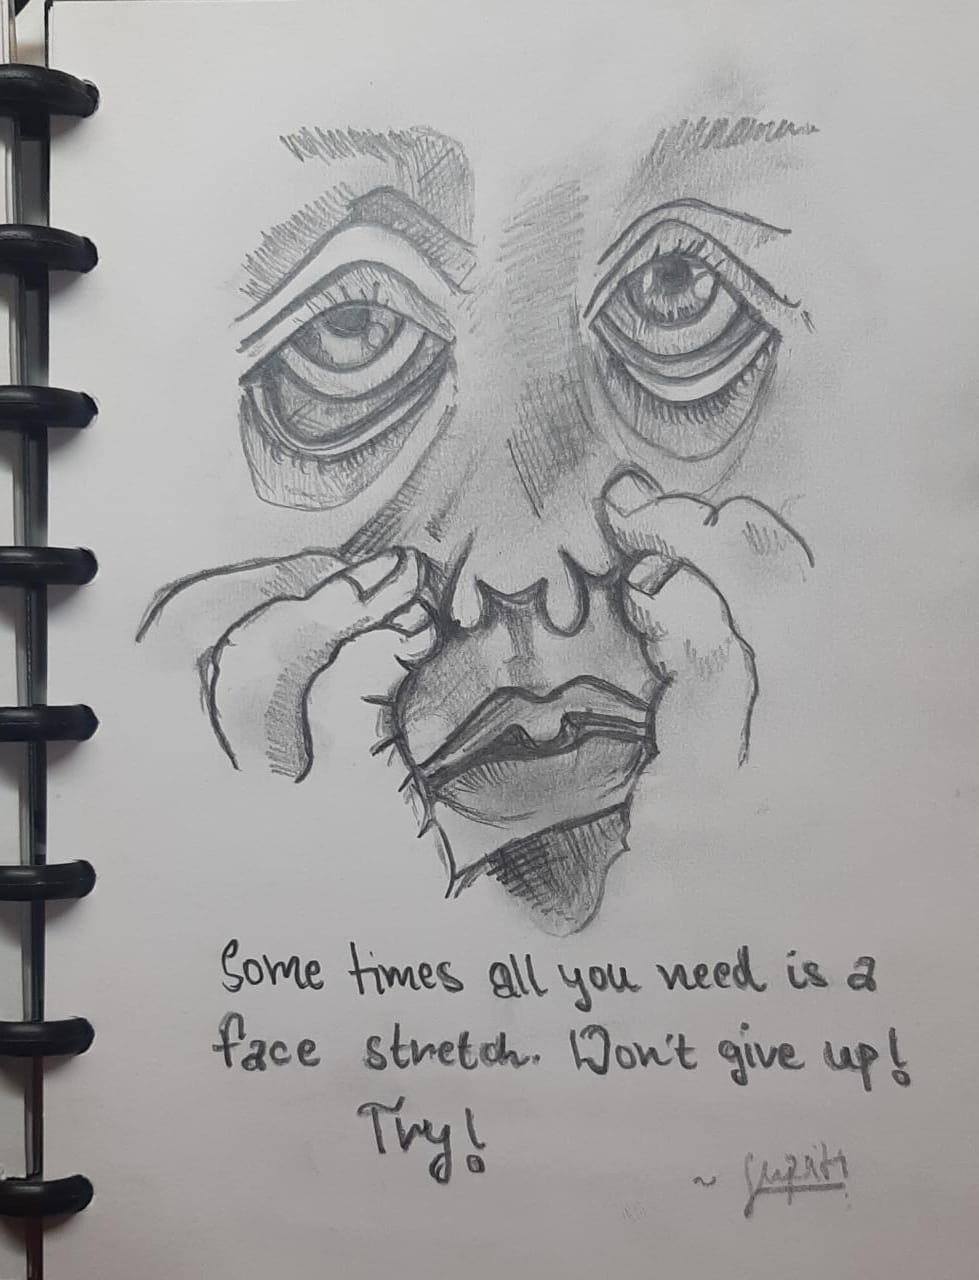 Some times all you need is a
face stretch. Don't give up!
Try!